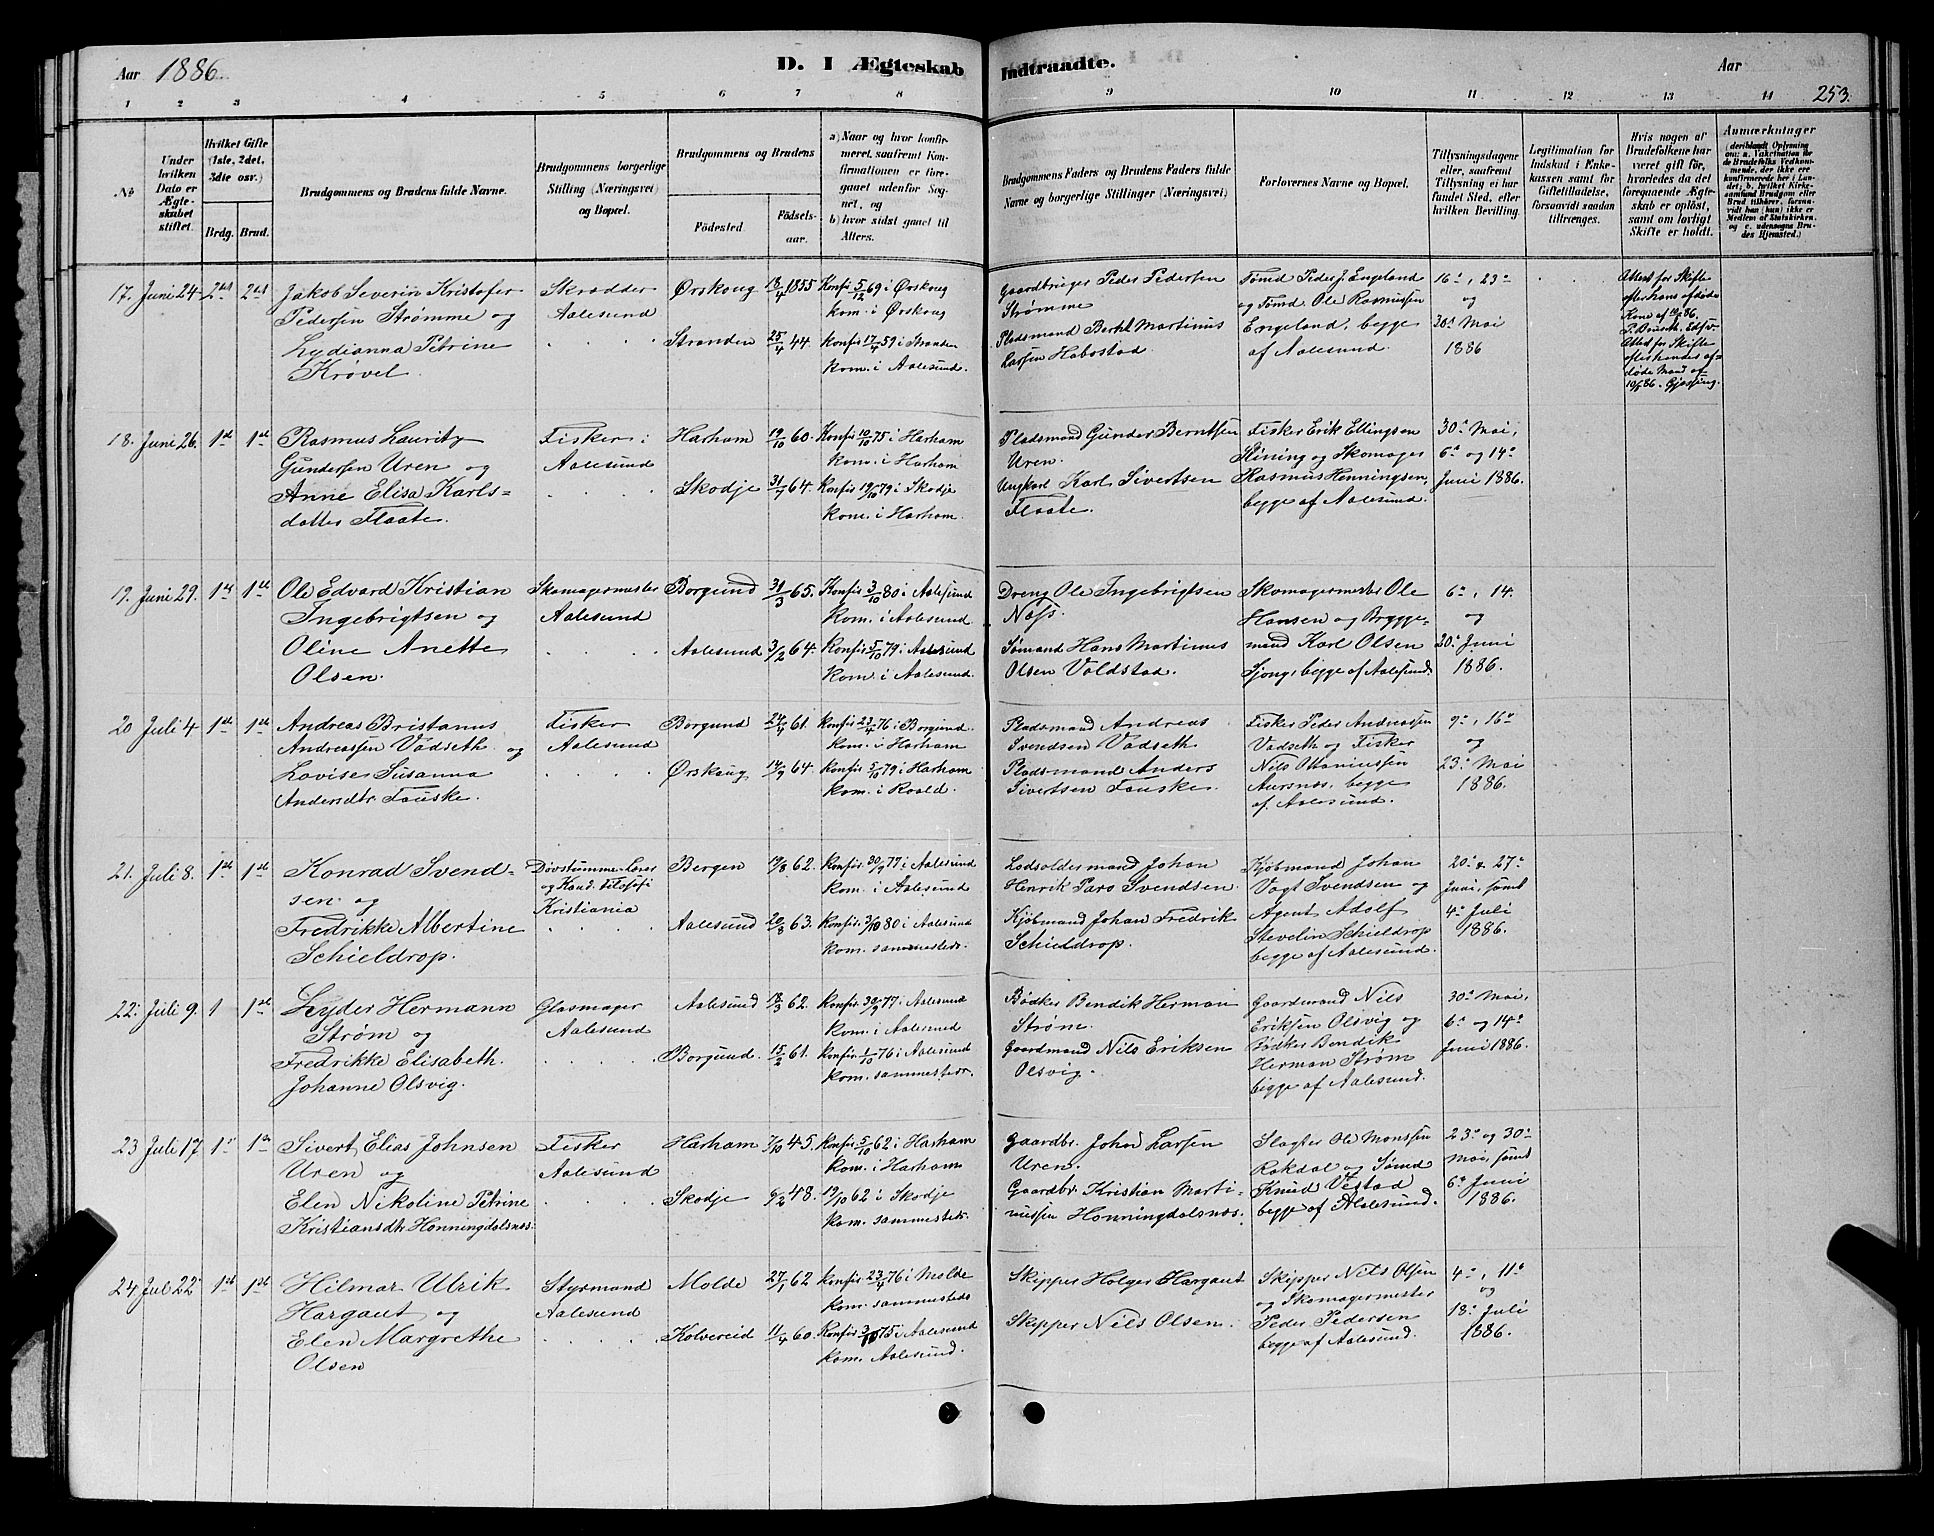 Aar 1886. D. I Ægteskab Indtraadte. Aar
1 2 3 4 5 6 7 8 9 10 11 12 13 14 253.
No
Under hvilken Dato er Ægteskabet stiftet.
Hvilket Gifte (1ste, 2det, 3die osv.)
Brdg. Brud.
Brudgommens og Brudens fulde Navne.
Brudgommens borgerlige Stilling (Næringsvei) og Bopæl.
Brudgommens og Brudens
Födested. Födselsaar.
a) Naar og hvor konfirmeret, saafremt Konfirmationen er foregaaet udenfor Sognet, og b) hvor sidst gaaet til Alters.
Brudgommens Faders og Brudens Faders fulde Navne og borgerlige Stillinger (Næringsvei)
Forlovernes Navne og Bopæl.
Tillysningsdagene eller, saafremt Tillysning ei har fundet Sted, efter hvilken Bevilling.
Legitimation for Indskud i Enkekassen samt for Giftetilladelse, forsaavidt saadan tiltrænges.
Hvis nogen af Brudefolkene har været gift før, hvorledes da det foregaaende Ægteskab er opløst, samt om lovligt Skifte er holdt.
Anmærkninger (deriblandt Oplysning om: a. Vakcination for de Brudefolks Vedkommende, der ikke ere konfirmerede her i Landet; b. hvilket Kirkesamfund Brudgom eller Brud tilhører, forsaavidt han (hun) ikke er Medlem af Statskirken, og c. udensogns Brudes Hjemsted.)
17. Juni 24. 2det 2det
Jakob Severin Kristofer
Pedersen Strømme og
Lydianna Petrine
Krøvel.
Skrædder
Aalesund
Ørskoug 18/4 1855
Stranden 25/4 44.
Konfir. 5/12 69 i Ørskoug
kom. i Ørskoug
konfir. 17/4 59 i Stranden
kom. i Aalesund.
Gaardbruger Peder Pedersen
Strømme
Pladsmand Bertel Martinus
Larsen Habostad.
Tømd Peder J. Engeland
og Tømd. Ole Rasmussen
Engeland, begge
af Aalesund.
16de, 23de
og
30de Mai
1886
Attest for Skifte
efter hans afdøde
Kone af
Attest for Skifte
efter hendes afdøde
Mand af
18. Juni 26. 1ste 1ste
Rasmus Lauritz
Gundersen Uren og
Anne Elisa Karls=
datter Flaate.
Fisker i
Aalesund
Harham 19/10 60.
Skodje 31/7 64.
Konfir. 10/10 75 i Harham
kom. i Harham
Konfir. 19/10 79 i Skodje
kom. i Harham.
Pladsmand Gunder Berntsen
Uren.
Ungkarl Karl Sivertsen
Flaate.
Fisker Erik Ellingsen
Slining og Skomager
Rasmus Henningsen,
begge af Aalesund.
30de Mai,
6te og 14de
Juni 1886.
19. Juni 29. 1ste 1ste
Ole Edvard Kristian
Ingebrigtsen og
Oline Anette
Olsen.
Skomagermester
Aalesund
Borgund 31/3 65.
Aalesund 3/2 64.
Konfir. 3/10 80 i Aalesund
Kom. i Aalesund
Konfir. 5/10 79 i Aalesund
Kom. i Aalesund.
Dreng Ole Ingebrigtsen
Næss.
Sømand Hans Martinus
Olsen Voldstad.
Skomagermester Ole
Hansen og Brygge=
mand Karl Olsen
Sjong, begge af Aalesund.
6te, 14.
og
20de Juni
1886.
20 Juli 4 1ste 1ste
Andreas Bristanus
Andreassen Vadseth og
Lovise Susanna
Andersdtr. Fauske.
Fisker
Aalesund
Borgund 24/4 61.
Ørskoug 14/9 64.
konfir. 23/4 76 i Borgund.
kom. i Harham
konfir. 5/10 79 i Harham
kom. i Roald.
Pladsmand Andreas
Svendsen Vadseth
Pladsmand Anders
Sivertsen Fauske.
Fisker Peder Andreassen
Vadseth og Fisker
Nils
Aursnes, begge
af Aalesund.
9de, 16de
og
23de Mai
1886.
21. Juli 8. 1ste 1ste
Konrad Svend=
sen og
Fredrikke Albertine
Schieldrop.
Døvstumme-Lærer
og Kand. Filosofi
Kristiania
Bergen 19/8 62.
Aalesund 20/8 63.
konfir. 30/9 77 i Aalesund
kom. i Aalesund
konfir. 3/10 80 i Aalesund
kom. sammesteds.
Lodsoldermand Johan
Henrik Pars Svendsen.
Kjøbmand Johan Fredrik
Schieldrop.
Kjøbmand Johan
Vogt Svendsen og
Agent Adolf
Stevelin Schieldrop
begge af Aalesund.
20de & 27de
Juni, samt
4de Juli
1886.
22. Juli 9. 1 1ste
Lyder Hermann
Strøm og
Fredrikke Elisabeth
Johanne Olsvig.
Glasmager
Aalesund
Aalesund 18/3 62.
Borgund. 15/2 61.
konfir. 30/9 77 i Aalesund
kom. i Aalesund
konfir. 1/10 76 i Aalesund
kom. sammesteds.
Bødker Bendik Herman
Strøm.
Gaardmand Nils Eriksen
Olsvig.
Gaardmand Nils
Eriksen Olsvig og
Bødker Bendik
Herman Strøm
begge af Aalesund.
30de Mai,
6te og 14de
Juni 1886.
23 Juli 17 1ste 1ste
Sivert Elias Johnsen
Uren og
Elen Nikoline Petrine
Kristiansdtr Honningdalsnes
Fisker
Aalesund
Harham 7/10 45.
Skodje 6/2 48.
konfir. 5/10 62 i Harham
kom. i Harham
19/10 62 i Skodje
kom. sammesteds.
Gaardbr. John Larsen
Uren.
Gaardbr. Kristian Marti=
nussen Honningdalsnes.
Slagter Ole Monssen
Rakdal og Sømd
Knud Vestad
begge af Aalesund.
23de og 30de
Mai, samt
6te Juni
1886.
24 Jul 22 1ste 1ste
Hilmar Ulrik
Hargaut og
Elen Margrethe
Olsen
Styrmand
Aalesund
Molde 27/1 62
Kolvereid 11/4 60.
konfir. 23/4 76 i Molde
kom. sammesteds
Konfir. 3/10 75 i Aalesund
kom. Aalesund.
Skipper Holger Hargaut
Skipper Nils Olsen.
Skipper Nils Olsen
og Skomagermester
Peder Pedersen
begge af Aalesund.
4de, 11de
og
18de Juli
1886.